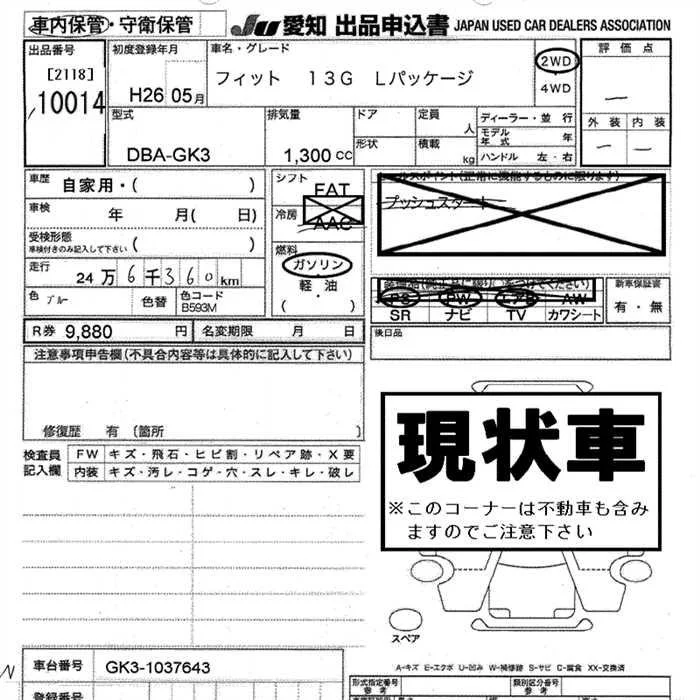 車内保管・守衛保管
JU 愛知 出品申込書 JAPAN USED CAR DEALERS ASSOCIATION
出品番号 初度登録年月 車名・グレード 評価点
[2118]
10014
H26 05月 フィット 13G Lパッケージ 2WD ・ 4WD
外装 内装
型式 排気量 ドア 定員 ディーラー・並 行
人 モデル年式 年
形状 積載
DBA-GK3 1,300 CC kg ハンドル 左・右
車歴 自家用・( ) シフト FAT
プッシュスタート
車検 年 月( 日) 冷房 AAC
受検形態
車検付きのみ記入して下さい ( )
燃料 ガソリン 軽・油 ( )
走行 24万6千360km
PS PW エアB AW 新車保証書
SR ナビ TV カワシート 有・無
色 ブルー 色替 色コード B593M
R券 9,880 円 名変期限 月 日 後日品
注意事項申告欄(不具合内容等は具体的に記入して下さい)
修復歴 有 (箇所 )
現状車
※このコーナーは不動車も含み
ますのでご注意下さい
検査員 FW キズ・飛石・ヒビ割・リペア跡・X要
記入欄 内装 キズ・汚レ・コゲ・穴・スレ・キレ・破レ
スペア
A-キズ E-エクボ U-凹み W-補修跡 S-サビ C-腐食 XX-交換済
車台番号 GK3-1037643 形式指定番号 類別区分番号
参考 参考
登録番号